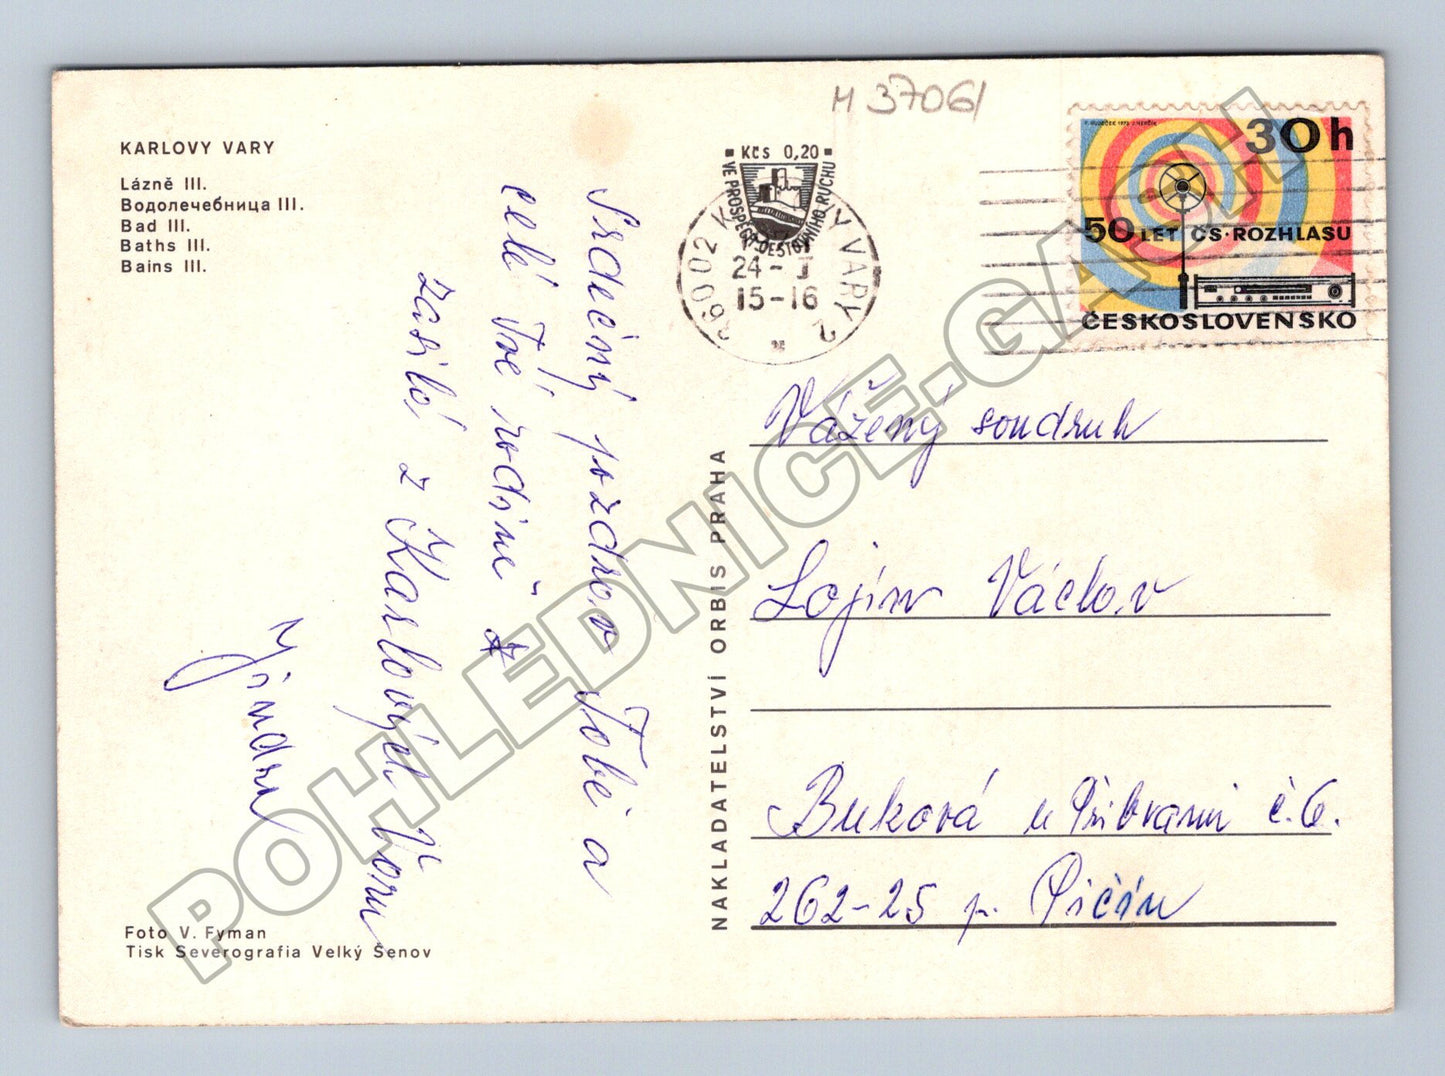 KARLOVY VARY
Lázně III.
Водолечебница III.
Bad III.
Baths III.
Bains III.
Srdečný pozdrav Tobě a
celé Tvé rodině
zasílá z Karlových Varů
Jindra
Foto V. Fyman
Tisk Severografia Velký Šenov
NAKLADATELSTVÍ ORBIS PRAHA
M 37061
Kčs 0,20
VE PROSPĚCH CESTOVNÍHO RUCHU
360 02 K Y VARY 2
24 - I
15-16
F. HUDEČEK 1973 J. HERČÍK
30 h
50 LET ČS. ROZHLASU
ČESKOSLOVENSKO
Vážený soudruh
Lojín Václav
Buková u Příbrami č. 6.
262-25 p. Pičín
POHLEDNICE.GASH